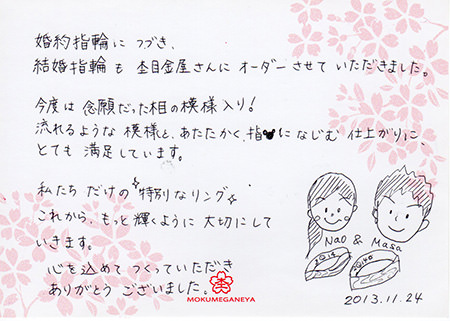 婚約指輪に つづき、
結婚指輪も 杢目金屋さんに オーダーさせて いただきました。
今度は 念願だった 柾の模様入り!
流れるような 模様と、あたたかく、指に なじむ 仕上がりに、
とても 満足しています。
私たち だけの "特別なリング"
これから、もっと 輝くように 大切にして
いきます。
心を込めて つくっていただき
ありがとう ございました。
MOKUMEGANEYA
Nao & Masa
2013.11.24